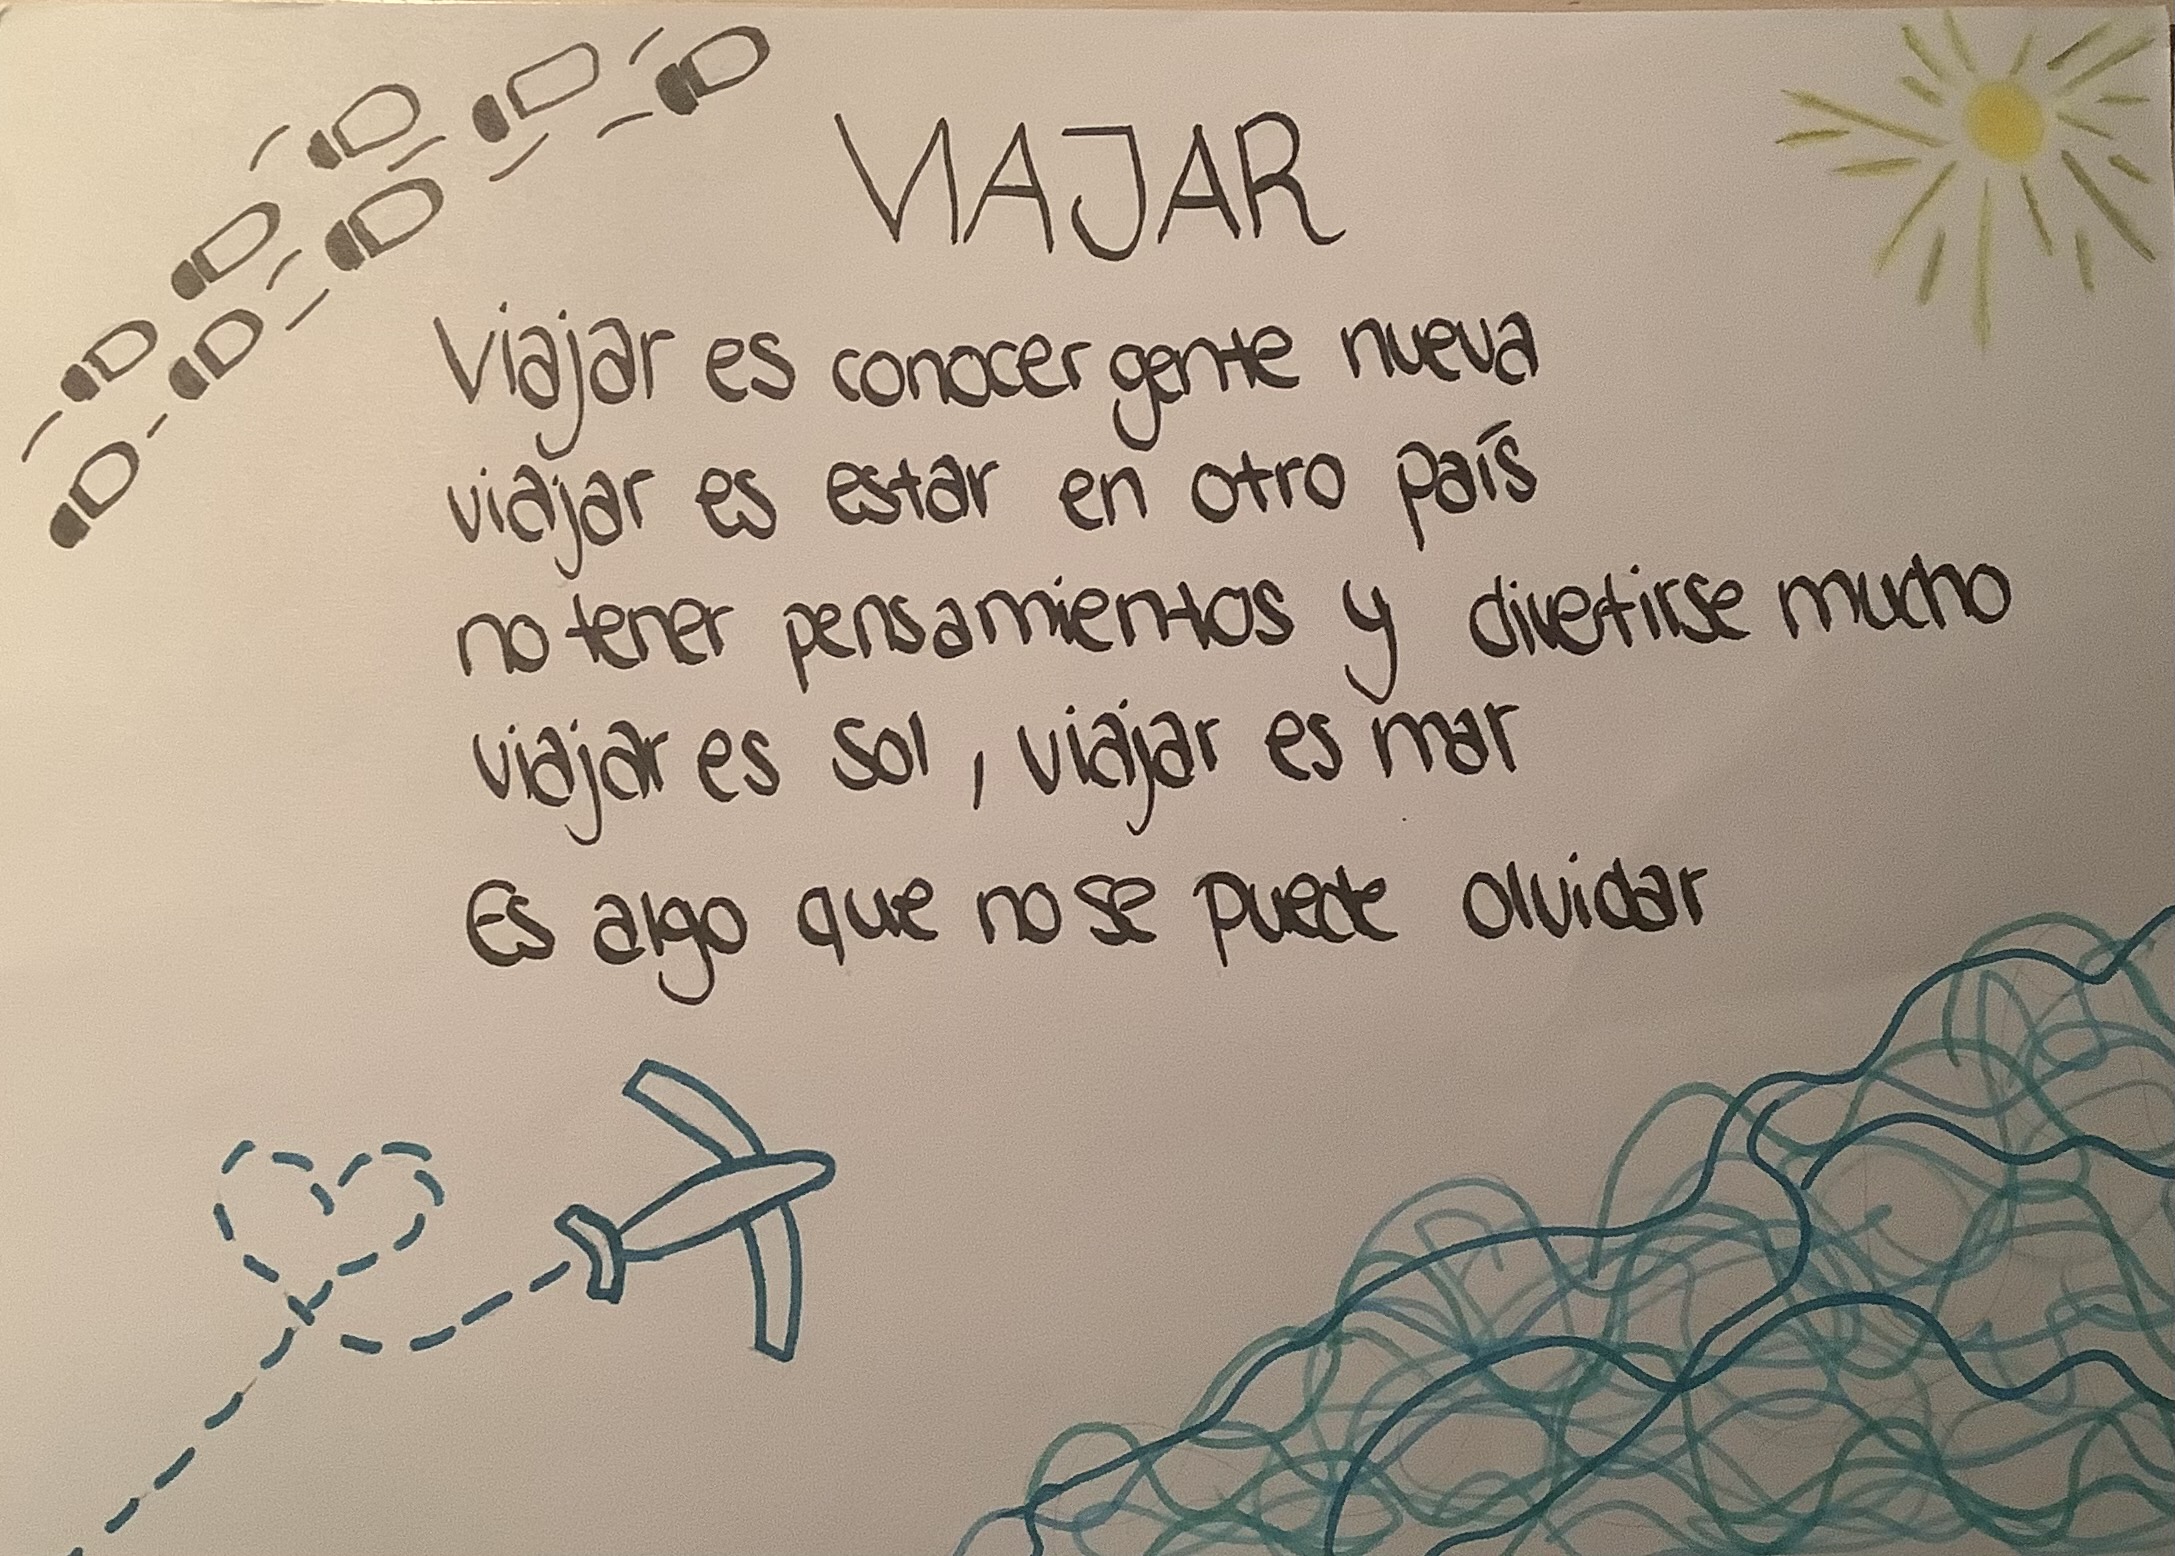 VIAJAR
Viajar es conocer gente nueva
viajar es estar en otro país
no tener pensamientos y divertirse mucho
viajar es sol, viajar es mar
Es algo que no se puede olvidar